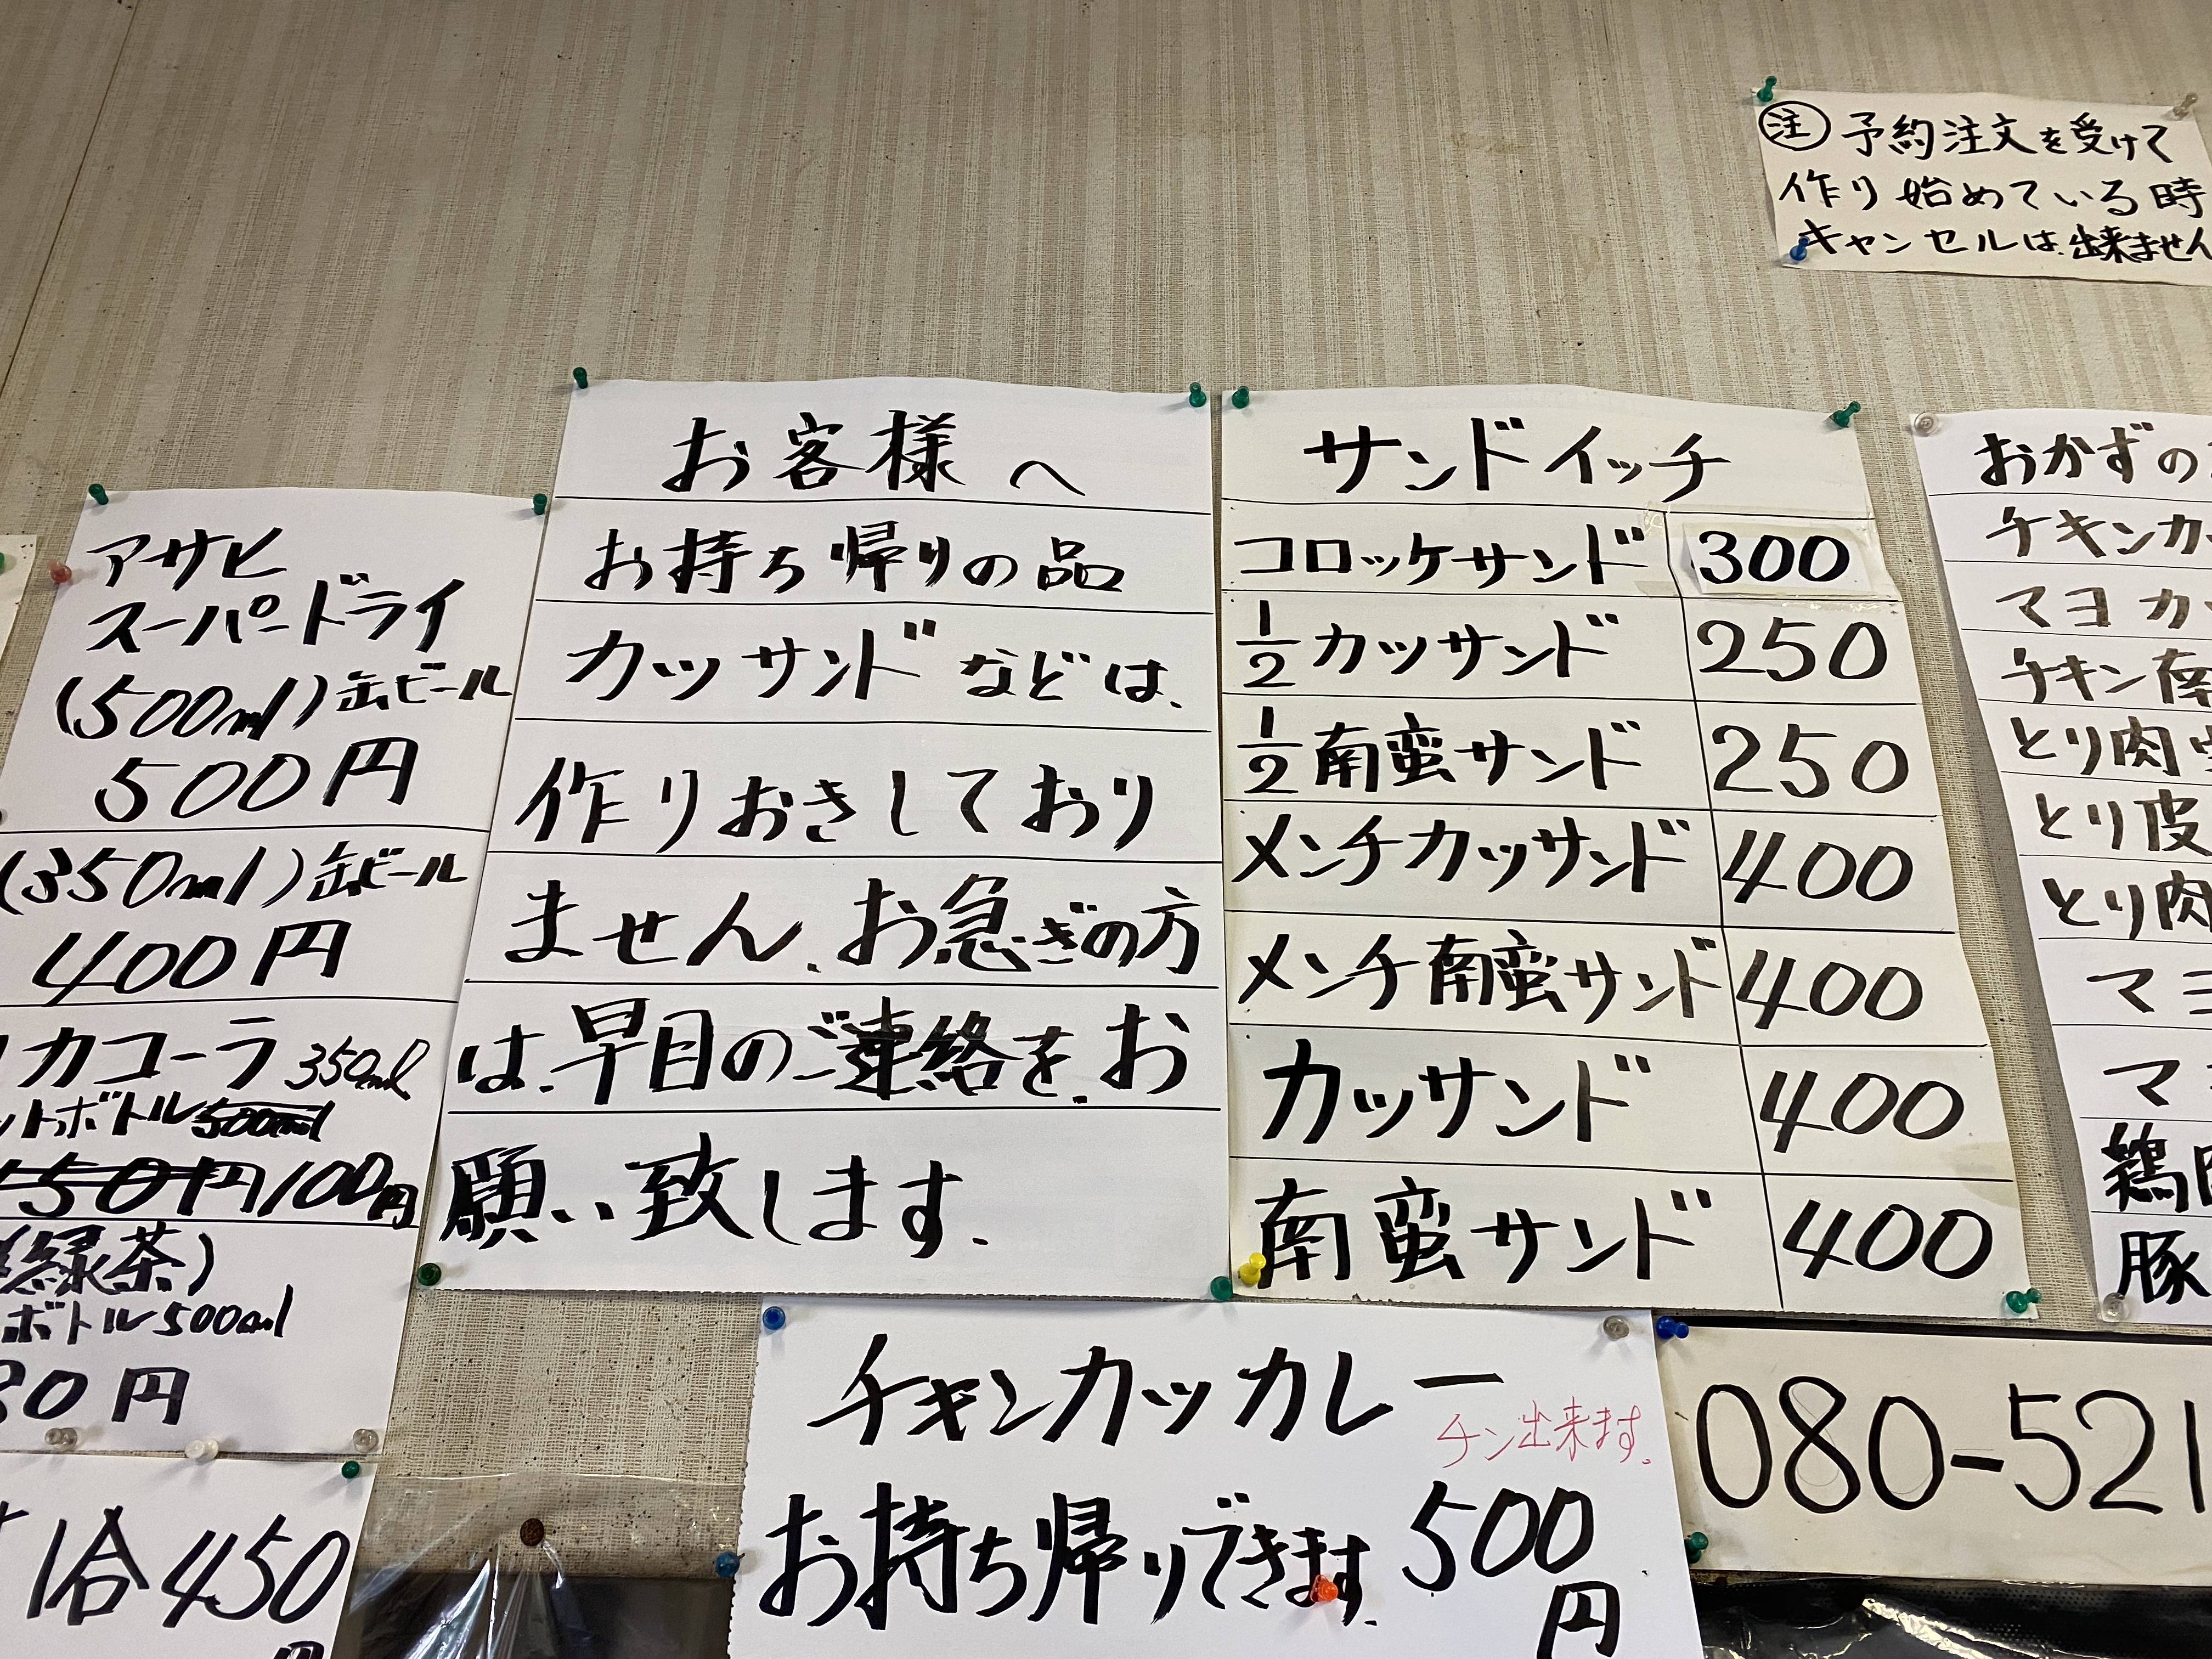 注 予約注文を受けて
作り始めている時
キャンセルは.出来ません
アサヒ
スーパードライ
(500ml)缶ビール
500円
(350ml)缶ビール
400円
カコーラ 350ml
ットボトル 500ml
150円/100円
(緑茶)
ボトル500ml
80円
1合450
円
お客様へ
お持ち帰りの品
カツサンドなどは、
作りおきしており
ません、お急ぎの方
は、早目のご連絡を、お
願い致します.
サンドイッチ
コロッケサンド 300
1/2カツサンド 250
1/2南蛮サンド 250
メンチカツサンド 400
メンチ南蛮サンド 400
カツサンド 400
南蛮サンド 400
おかずの
チキンカ
マヨカ
チキン南
とり肉
とり皮
とり肉
マヨ
マ
鶏
豚
チキンカツカレー
チン出来ます.
お持ち帰りできます. 500
円
080-521